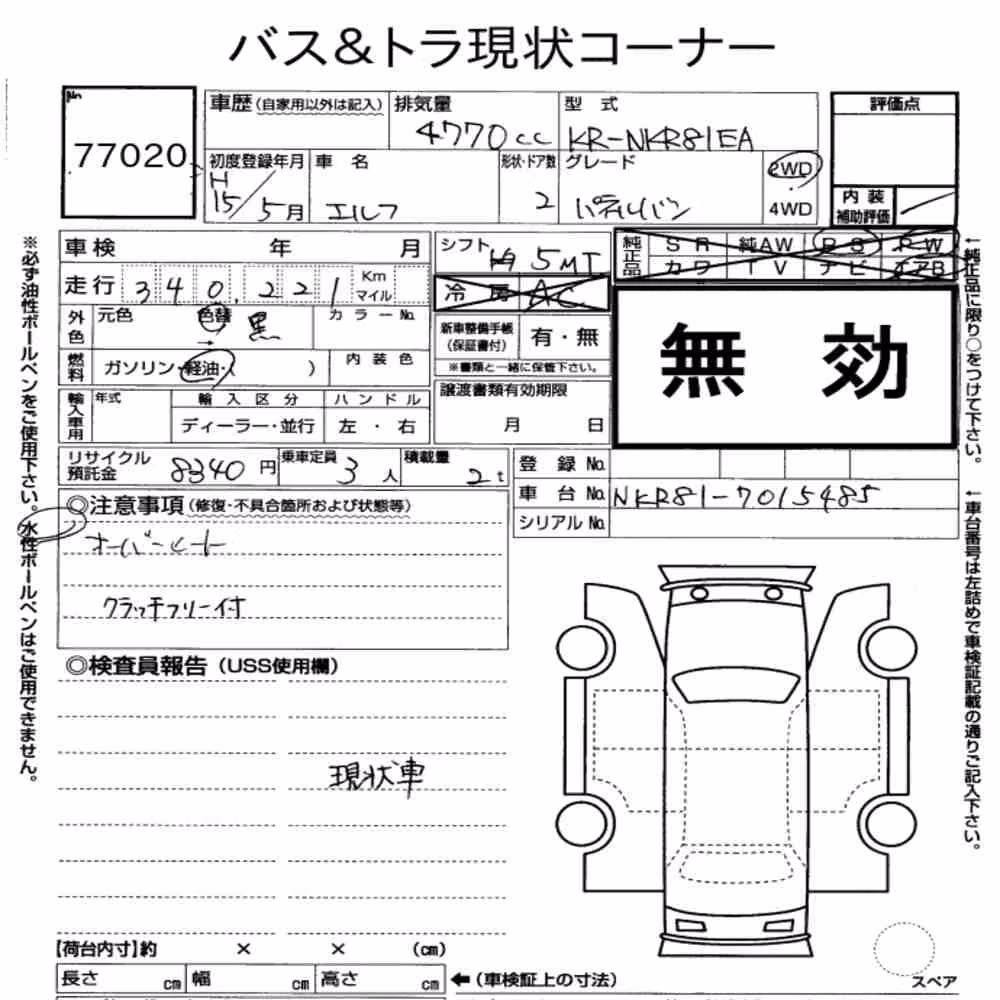 バス&トラ現状コーナー
No
77020
車歴(自家用以外は記入)
排気量
4770cc
型式
KR-NKR81EA
評価点
初度登録年月
H
15/5月
車名
エルフ
形状・ドア数
2
グレード
パネルバン
2WD
4WD
内装
補助評価
車検 年 月
走行 340,221 Km
マイル
シフト
5MT
冷房 AC
純正品
SR 純AW PS PW
カワ TV ナビ エアB
外色
元色
色替
→
黒
カラーNo.
新車整備手帳
(保証書付)
有・無
※書類と一緒に保管下さい。
燃料
ガソリン・軽油・( )
内装色
無効
輸入車用
年式
輸入区分
ハンドル
ディーラー・並行
左・右
譲渡書類有効期限
月 日
リサイクル
預託金
8340円
乗車定員
3人
積載量
2t
登録No.
車台No.
NKR81-7015485
シリアルNo.
◎注意事項(修復・不具合箇所および状態等)
オーバーヒート
クラッチフリー付
◎検査員報告(USS使用欄)
現状車
【荷台内寸】約 × × (cm)
長さ cm 幅 cm 高さ cm ←(車検証上の寸法)
スペア
※必ず油性ボールペンをご使用下さい。水性ボールペンはご使用できません。
←純正品に限り○をつけて下さい。
←車台番号は左詰めで車検証記載の通りご記入下さい。